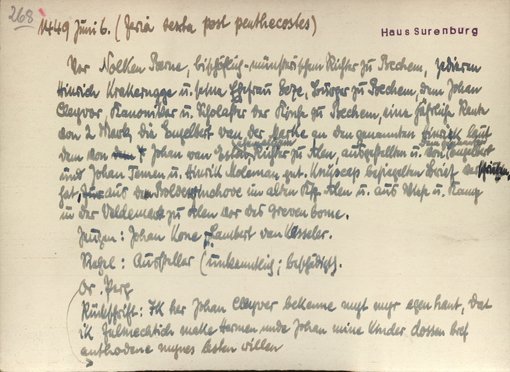 268
1449 Juni 6. (feria sexta post penthecostes)
Haus Surenburg
Vor Nolken Berne, bischöflich-münsterischen Richter zu Beckem, zedieren
Hinrich u. seine Ehefrau Beze, Bürger zu Beckem, dem Johan
Cleyvor, Kanoniker u. Scholaster der Kirche zu Beckem, eine jährliche Rente
von 2 Mark, die Engelbert van der Marke an den genannten Hinrick laut
dem von Johan van Richter zu Alen, ausgestellten u. von Engelbert
und Johan Tornen u. Hinrik Moleman gnt. besiegelten Brief
hat, aus den hove im alten Ksp. Alen u. aus u. Kamp
in der Veldemark zu Alen vor des greven bome.
Zeugen: Johan Kone, Lambert van Kesseler.
Siegel: Aussteller (unkenntlich; beschädigt).
Or. Perg.
Rückschrift: Ik her Johan Cleyver bekenne myt myr egen hant, dat
ik Johan mine kinder dossen bref
mynes lesten willen